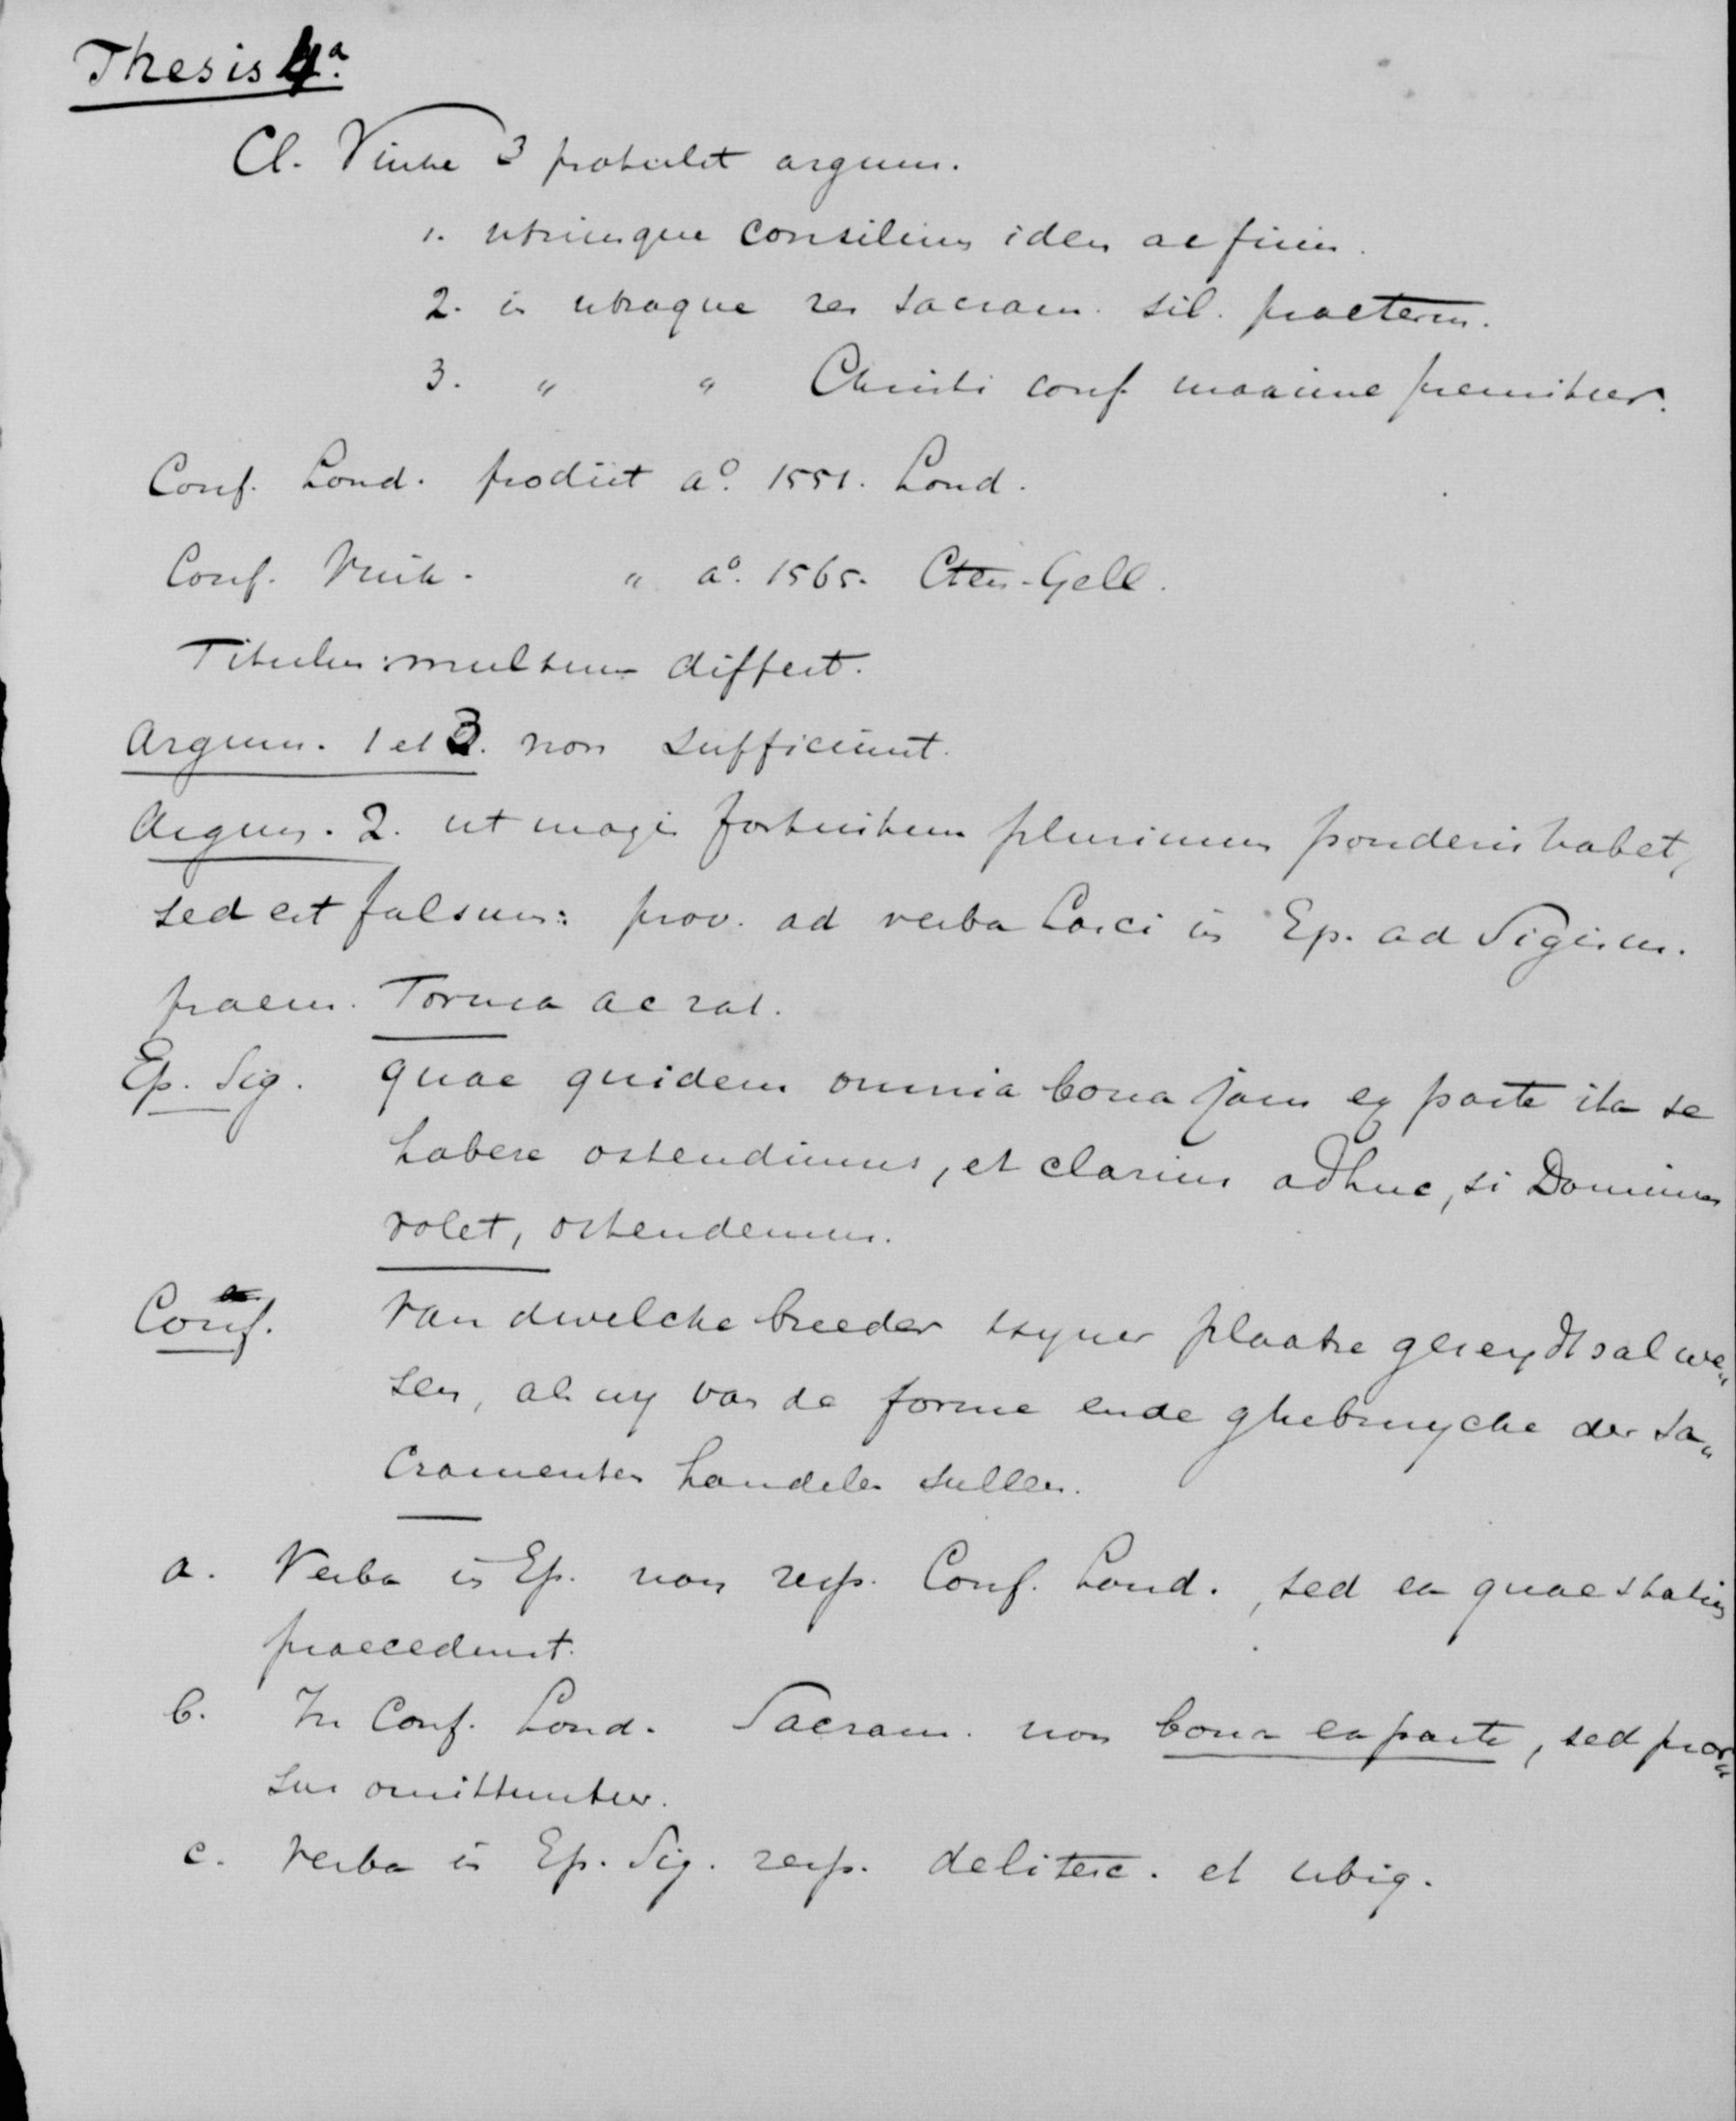 Thesis 4a.
Cl. Vinke 3 protulit argum.
1. utriusque consilium idem ac finis.
2. in utraque res sacram. sil. praeterm.
3. " " Christi conf. maxime premitur.
Conf. Lond. prodiit a° 1551. Lond.
Conf. Vink. " a°. 1565. Cten-Gell.
Titulus: multum differt.
Argum. 1 et 3. non sufficiunt.
Argum. 2. ut magis fortuitum plurimum ponderis habet,
sed est falsum: prov. ad verba Lasci in Ep. ad Sigism.
praem. Forma ac rat.
Ep. Sig. quae quidem omnia bona jam ex parte ita se
habere ostendimus, et clarius adhuc, si Dominus
volet, ostendemus.
Conf. Van dwelcke breeder tsyner plaatse gereydt sal we„
sen, als wy van de forme ende ghebruycke der Sa„
cramenten handelen sullen.
a. Verba in Ep. non resp. Conf. Lond., sed ea quae statim
praecedunt.
b. In Conf. Lond. Sacram. non bona ex parte, sed pror„
sus omittuntur.
c. Verba in Ep. Sig. resp. delitesc. et ubiq.